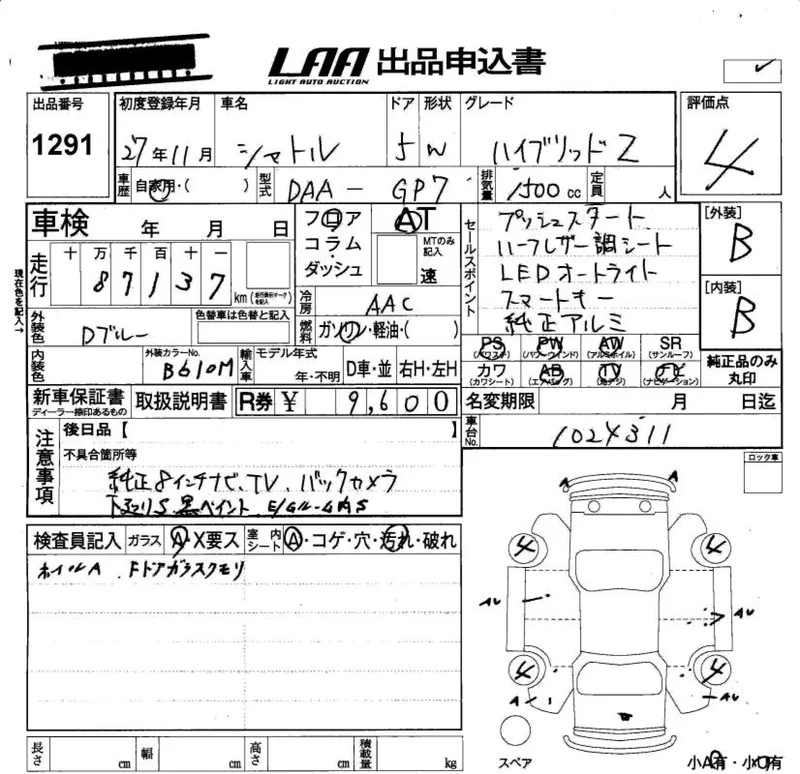 LAA 出品申込書
LIGHT AUTO AUCTION
出品番号
1291
初度登録年月
27年11月
車名
シャトル
ドア
5
形状
W
グレード
ハイブリッドZ
評価点
4
車歴
自家用・( )
型式
DAA - GP7
排気量
1500 cc
定員
人
車検
年 月 日
フロア
コラム・
ダッシュ
AT
MTのみ記入
速
セールスポイント
プッシュスタート
ハーフレザー調シート
LEDオートライト
スマートキー
純正アルミ
[外装]
B
[内装]
B
現在色を記入→
走行
十 万 千 百 十 一
8 7 1 3 7
km
冷房
AAC
燃料
ガソリン・軽油・( )
外装色
Dブルー
色替車は色替と記入
内装色
外装カラーNo.
B610M
輸入車
モデル年式
年・不明
D車・並
右H・左H
PS
(パワステ)
PW
(パワーウィンド)
AW
(アルミホイル)
SR
(サンルーフ)
カワ
(カワシート)
AB
(エアバッグ)
TV
(地デジ)
ナビ
(ナビゲーション)
純正品のみ
丸印
新車保証書
ディーラー捺印あるもの
取扱説明書
R券
¥ 9,600
名変期限
月 日迄
車台No.
1024311
注意事項
後日品【
】
不具合箇所等
純正8インチナビ、TV、バックカメラ
下廻りS、黒ペイント
ロック車
検査員記入
ガラス
A・X要ス
室内シート
A・コゲ・穴・汚れ・破れ
ホイルA Fドアガラスクモリ
A A
4 4
AU AU
4 4
A AU
スペア
小A有・小X有
長さ cm
幅 cm
高さ cm
積載量 kg